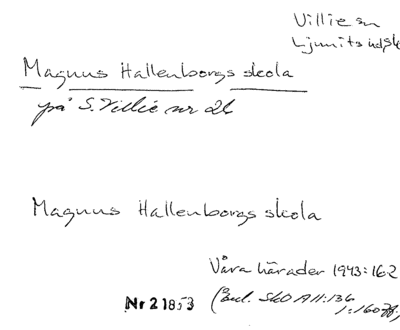 Villie sn
Ljunits hd Sk
Magnus Hallenborgs skola
på S. Villie nr 26
Magnus Hallenborgs skola
Våra härader 1943:162
Nr 21853 (Bul. SkO A11:136
1:160